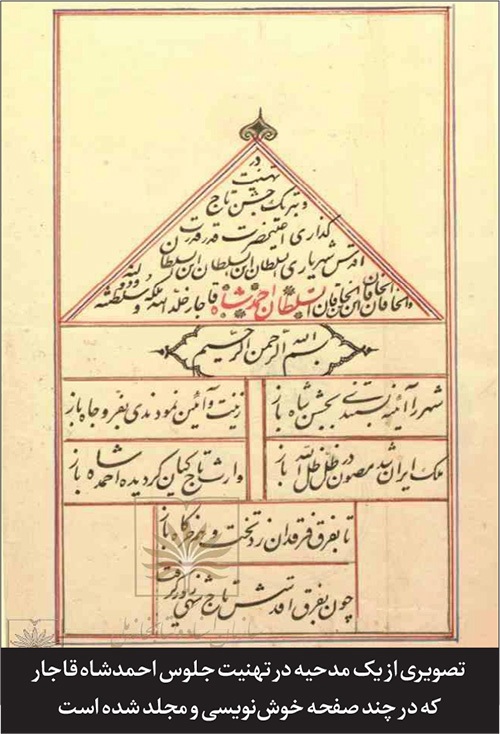 در
تهنیت
و تبریک جشن تاج
گذاری اعلیحضرت قدر قدرت
اقدس شهریاری السلطان ابن السلطان ابن السلطان
والخاقان ابن الخاقان ابن الخاقان السلطان احمد شاه قاجار خلد الله ملکه و دولته و سلطنته
بسم الله الرحمن الرحیم
شهر را آئینه بستندی بجشن شاه باز
زینت و آئین نمودندی بفر و جاه باز
ملک ایران شد مصون در ظل ظل الله باز
وارث تاج کیان گردیده احمد شاه باز
تا بفرق فرقدان زد تخت و هم خرگاه باز
چون بفرق اقدسش تاج شهی زیور گرفت
تصویری از یک مدحیه در تهنیت جلوس احمدشاه قاجار
که در چند صفحه خوش‌نویسی و مجلد شده است